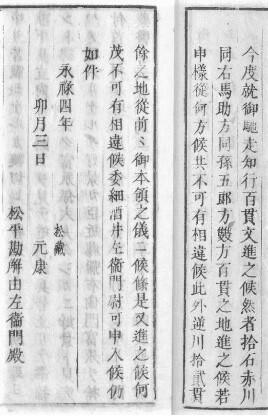 今度就御馳走知行百貫文進之候然者拾石赤川
同右馬助方同孫五郎方嫂方百貫之地進之候若
申樣從何方候共不可有相違候此外逆川拾貳貫
餘之地從前〻御本領之儀ニ候條是又進之候何
茂不可有相違候委細酒井左衞門尉可申入候仍
如件
永祿四年
卯月三日
松藏
元康
松平勘解由左衞門殿